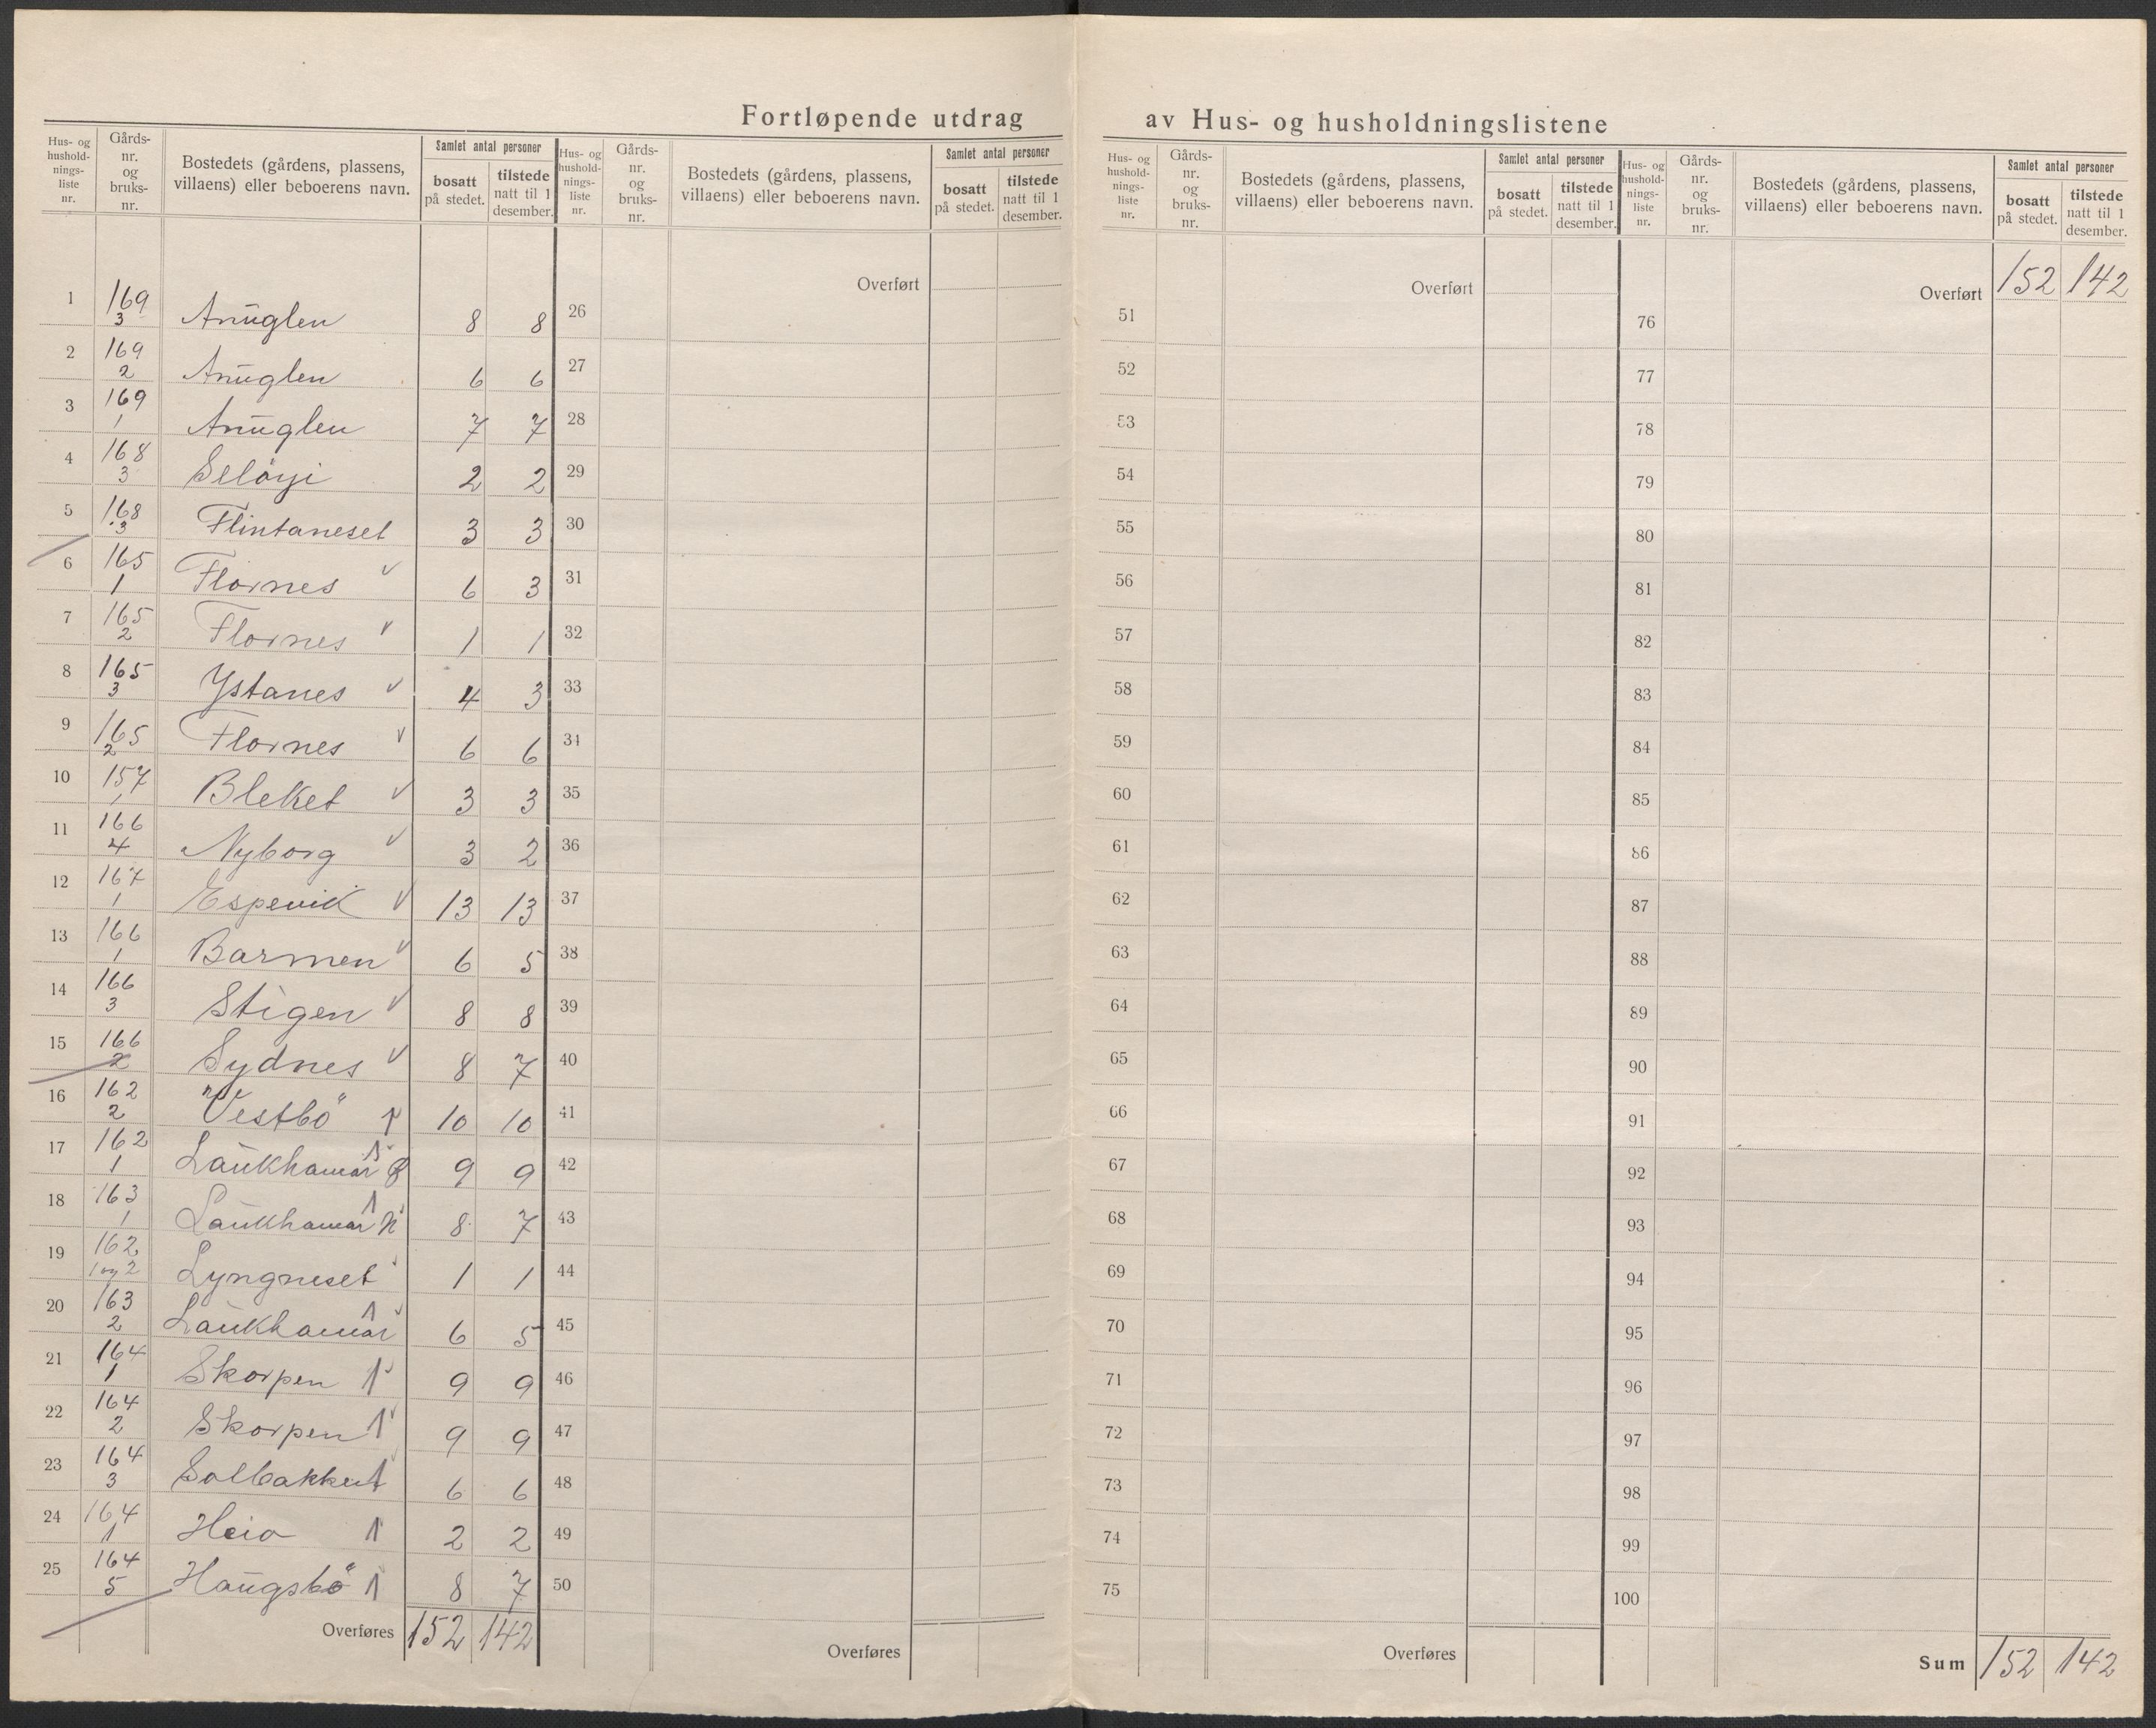 Fortløpende utdrag av Hus- og husholdningslistene
Hus- og hushold-nings-liste nr. Gårds-nr. og bruks-nr. Bostedets (gårdens, plassens, villaens) eller beboerens navn. Samlet antal personer bosatt på stedet. tilstede natt til 1 desember.
Hus- og hushold-nings-liste nr. Gårds-nr. og bruks-nr. Bostedets (gårdens, plassens, villaens) eller beboerens navn. Samlet antal personer bosatt på stedet. tilstede natt til 1 desember.
Hus- og hushold-nings-liste nr. Gårds-nr. og bruks-nr. Bostedets (gårdens, plassens, villaens) eller beboerens navn. Samlet antal personer bosatt på stedet. tilstede natt til 1 desember.
Hus- og hushold-nings-liste nr. Gårds-nr. og bruks-nr. Bostedets (gårdens, plassens, villaens) eller beboerens navn. Samlet antal personer bosatt på stedet. tilstede natt til 1 desember.
Overført Overført Overført 152 142
1 169/3 Anuglen 8 8 26 51 76
2 169/2 Anuglen 6 6 27 52 77
3 169/1 Anuglen 7 7 28 53 78
4 168/3 Selöyi 2 2 29 54 79
5 168/3 Flintaneset 3 3 30 55 80
6 165/1 Flornes 6 3 31 56 81
7 165/2 Flornes 1 1 32 57 82
8 165/3 Ystanes 4 3 33 58 83
9 165/2 Flornes 6 6 34 59 84
10 157/1 Bleket 3 3 35 60 85
11 166/4 Nyborg 3 2 36 61 86
12 167/1 Espevik 13 13 37 62 87
13 166/1 Barmen 6 5 38 63 88
14 166/3 Stigen 8 8 39 64 89
15 166/2 Sydnes 8 7 40 65 90
16 162/2 Vestbö 10 10 41 66 91
17 162/1 Laukhamar 9 9 42 67 92
18 163/1 Laukhamar N 8 7 43 68 93
19 162/1 og 2 Lyngneset 1 1 44 69 94
20 163/2 Laukhamar 6 5 45 70 95
21 164/1 Skorpen 9 9 46 71 96
22 164/2 Skorpen 9 9 47 72 97
23 164/3 Solbakken 6 6 48 73 98
24 164/1 Heio 2 2 49 74 99
25 164/5 Haugsbö 8 7 50 75 100
Overføres 152 142 Overføres Overføres Sum 152 142